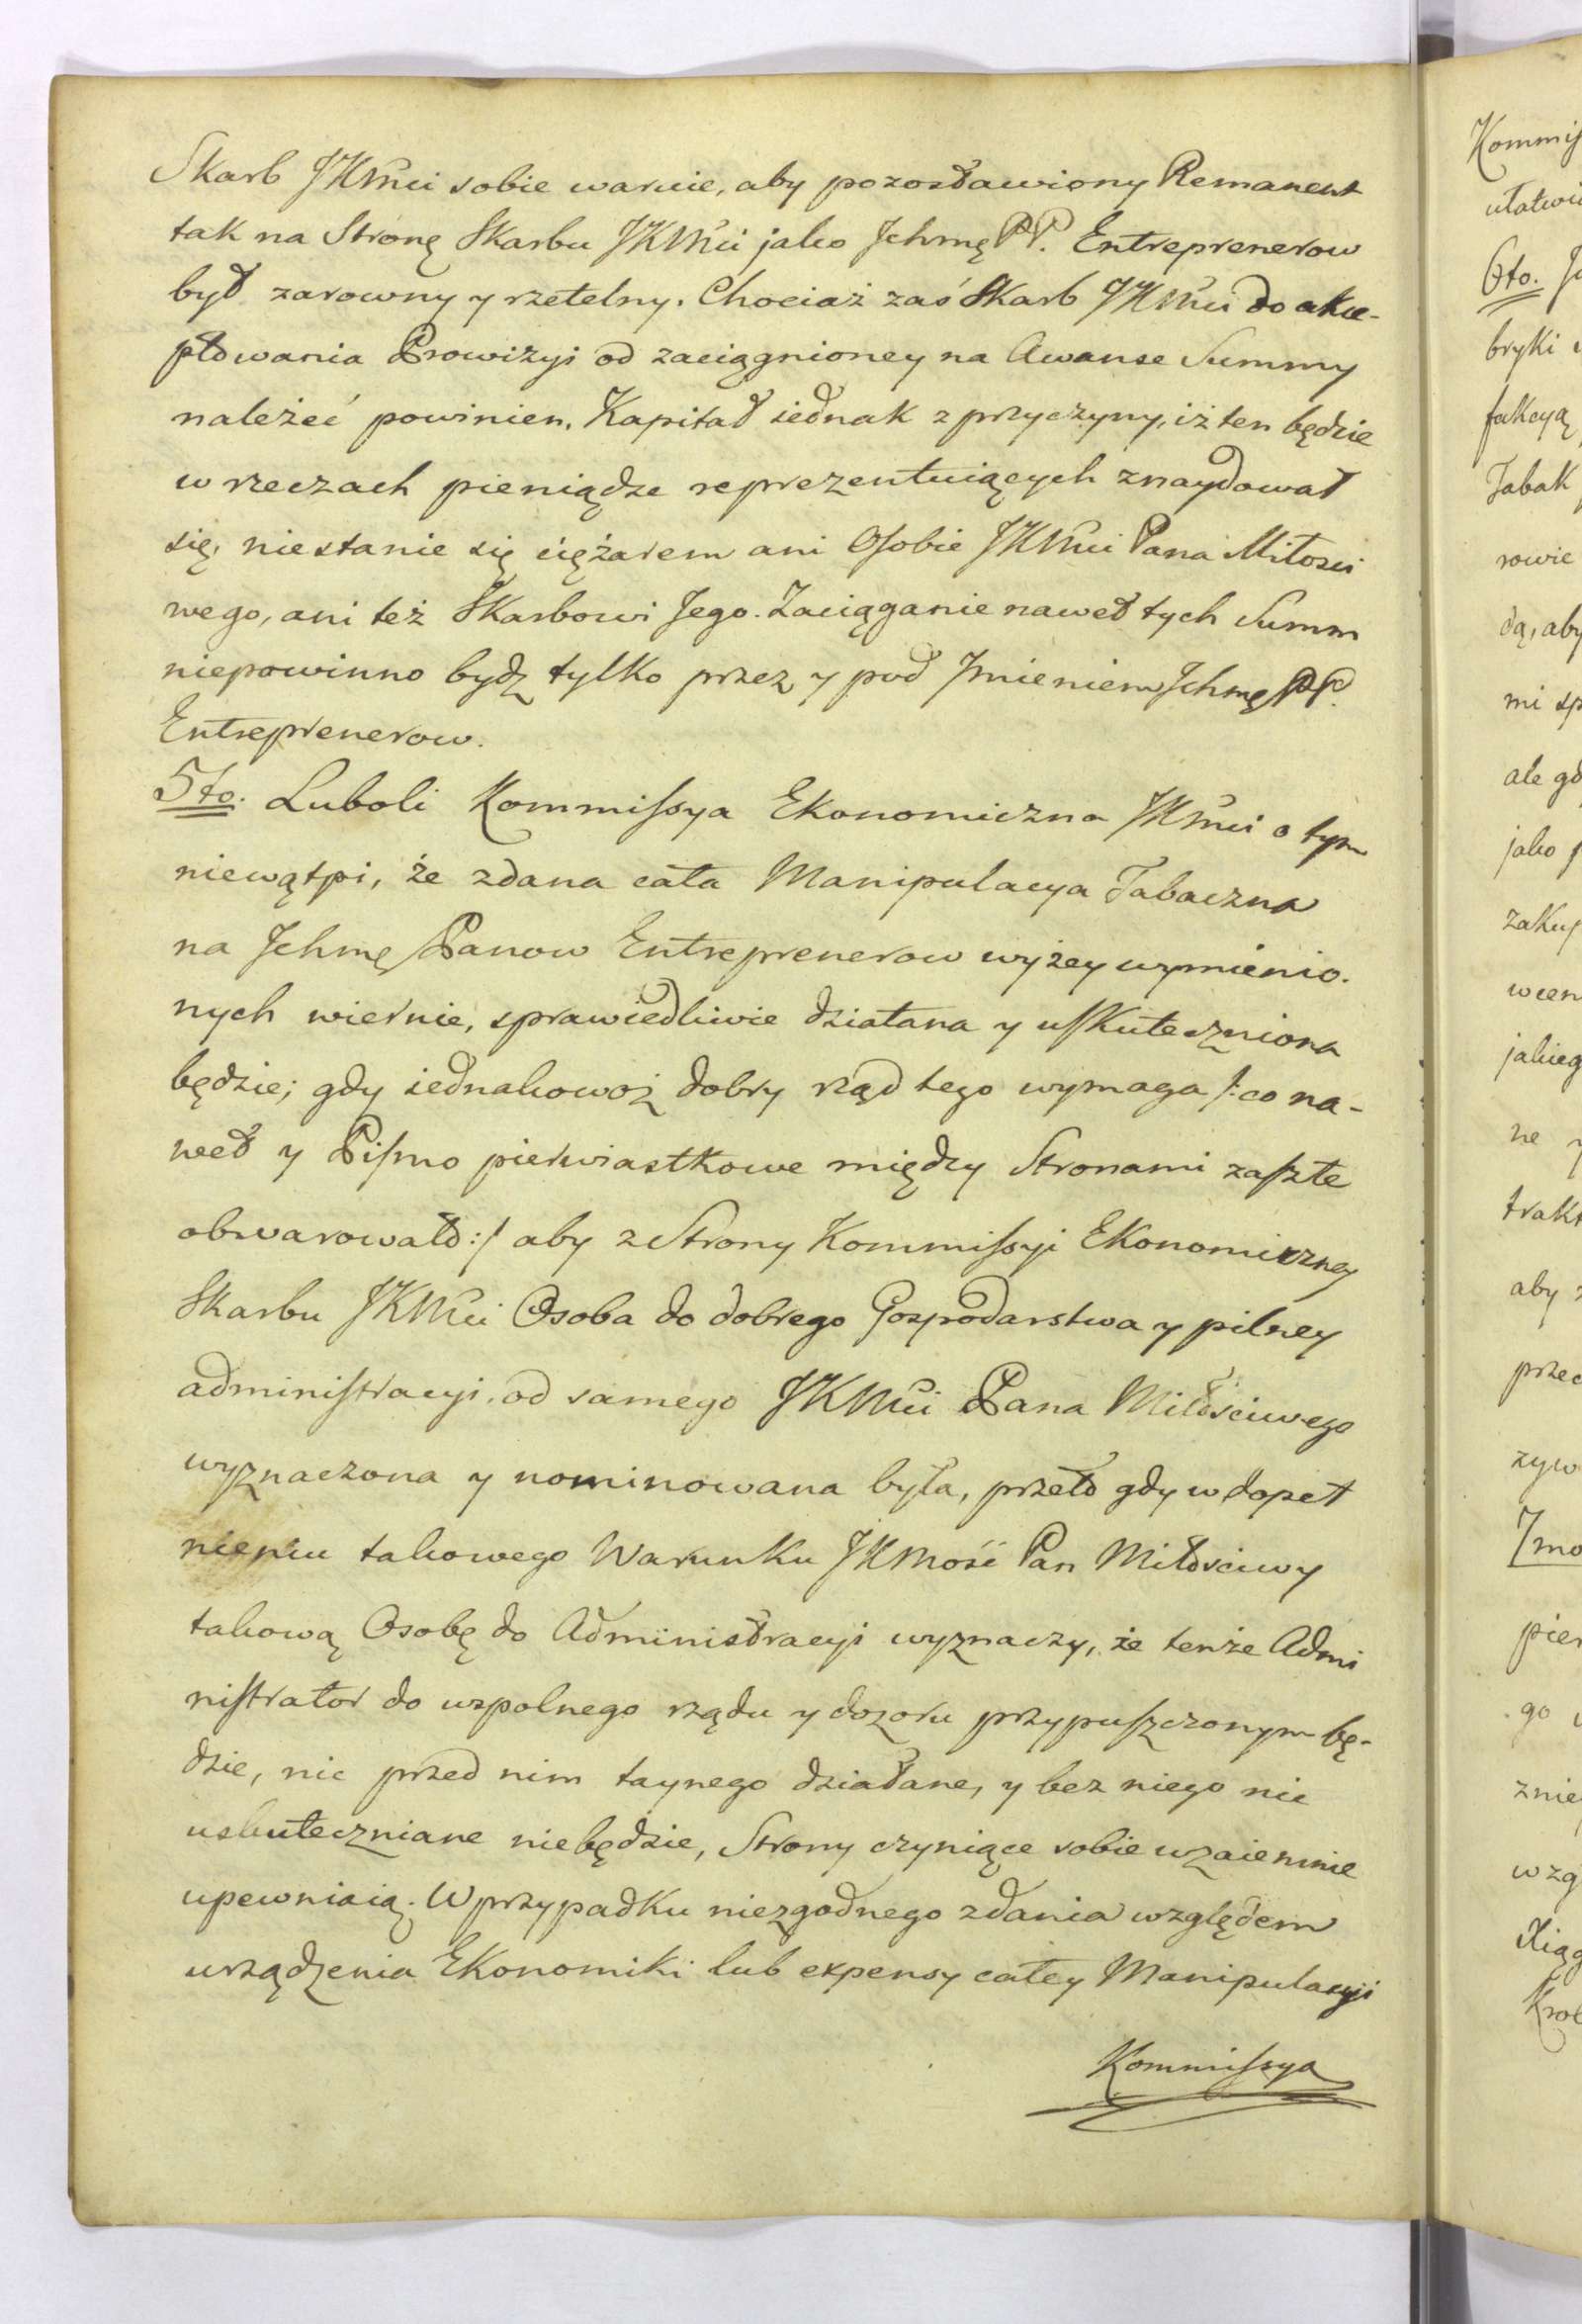 Skarb JKMci sobie waruie, aby pozostawiony Remanent
tak na Stronę Skarbu JKMci jako Jchmę PP. Entreprenerow
był zarowny y rzetelny. Chociaż zaś Skarb JKMci do akce-
ptowania Prowizyi od zaciągnioney na Awanse Summy
należeć powinien, Kapitał iednak z przyczyny, iż ten będzie
w rzeczach pieniądze reprezentuiących znaydował
się, niestanie się ciężarem ani Osobie JKMci Pana Miłości
wego, ani też Skarbowi Jego. Zaciąganie nawet tych Summ
niepowinno bydz tylko przez y pod Jmieniem Jchmę PP.
Entreprenerow.
5to. Luboli Kommissya Ekonomiczna JKMci o tym
niewątpi, że zdana cała Manipulacya Tabaczna
na Jchmę Panow Entreprenerow wyżey wymienio-
nych wiernie, sprawiedliwie działana y uskuteczniona
będzie; gdy iednakowoż dobry rząd tego wymaga /: co na-
wet y Pismo pierwiastkowe między Stronami zaszłe
obwarowało :/ aby z Strony Kommissyi Ekonomiczney
Skarbu JKMci Osoba do dobrego Gospodarstwa y pilney
administracyi, od samego JKMci Pana Miłościwego
wyznaczona y nominowana była, przeto gdy w dopeł
nieniu takowego Warunku JKMość Pan Miłościwy
takową Osobę do Administracyi wyznaczy, że tenże Admi
nistrator do wspolnego rządu y dozoru przypuszczonym bę-
dzie, nic przed nim taynego działane, y bez niego nic
uskuteczniane niebędzie, Strony czyniące sobie wzaiemnie
upewniaią. W przypadku niezgodnego zdania względem
urządzenia Ekonomiki lub expensy całey Manipulacyi
Kommissya
Kommis
ułatwi
6to. J
bryki
fakcyą
Tabak
rowie
dą, aby
mi sp
ale gd
jako
zakup
wcen
jakieg
ne
trakt
aby
przec
zyw
7mo
pier
go
znie
wzg
Xiąg
Krol